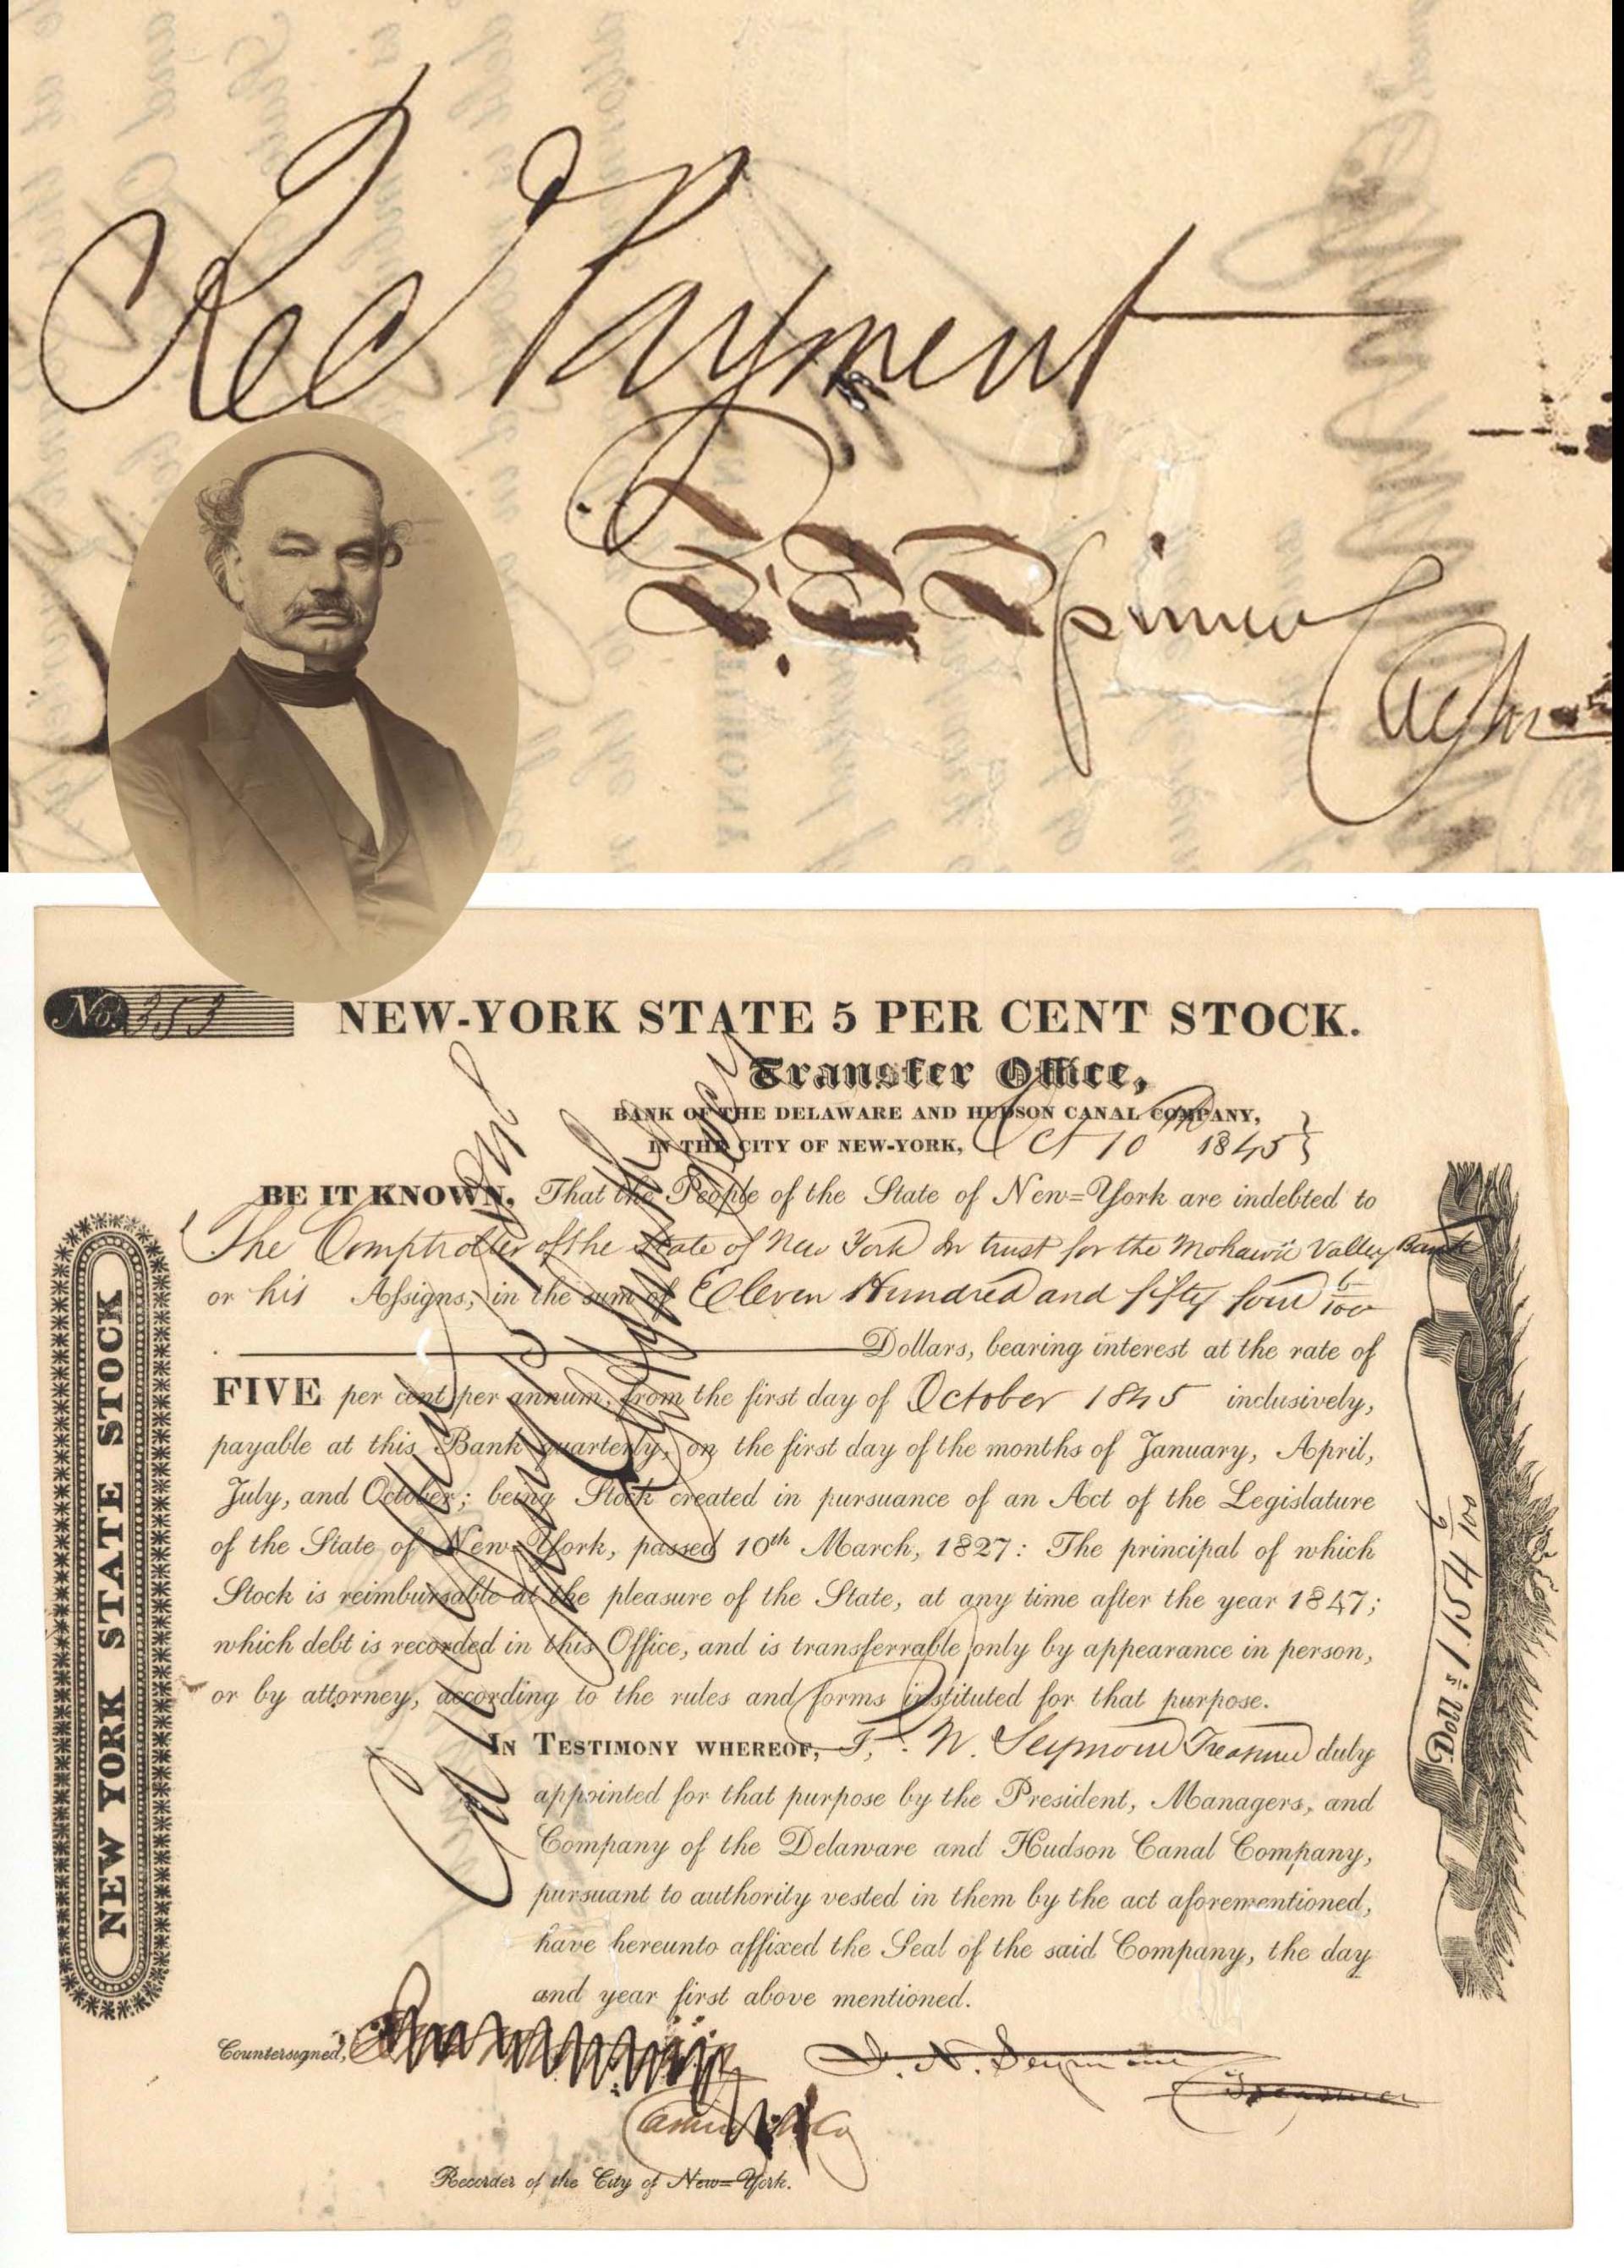 Rec'd Payment
F. E. Spinner
Cash
No. 353
NEW-YORK STATE 5 PER CENT STOCK.
Transfer Office,
BANK OF THE DELAWARE AND HUDSON CANAL COMPANY,
IN THE CITY OF NEW-YORK, Oct 10th 1845
BE IT KNOWN, That the People of the State of New-York are indebted to
The Comptroller of the State of New York In trust for the Mohawk Valley Bank
or his Assigns, in the sum of Eleven Hundred and fifty four 6/100
Dollars, bearing interest at the rate of
FIVE per cent per annum, from the first day of October 1845 inclusively,
payable at this Bank quarterly, on the first day of the months of January, April,
July, and October; being Stock created in pursuance of an Act of the Legislature
of the State of New-York, passed 10th March, 1827: The principal of which
Stock is reimbursable at the pleasure of the State, at any time after the year 1847;
which debt is recorded in this Office, and is transferrable only by appearance in person,
or by attorney, according to the rules and forms instituted for that purpose.
IN TESTIMONY WHEREOF, I, I. N. Seymour Treasurer duly
appointed for that purpose by the President, Managers, and
Company of the Delaware and Hudson Canal Company,
pursuant to authority vested in them by the act aforementioned,
have hereunto affixed the Seal of the said Company, the day
and year first above mentioned.
Countersigned,
I. N. Seymour
Treasurer
Recorder of the City of New-York.
NEW YORK STATE STOCK
Dolls 1.154 6/100
Cancelled